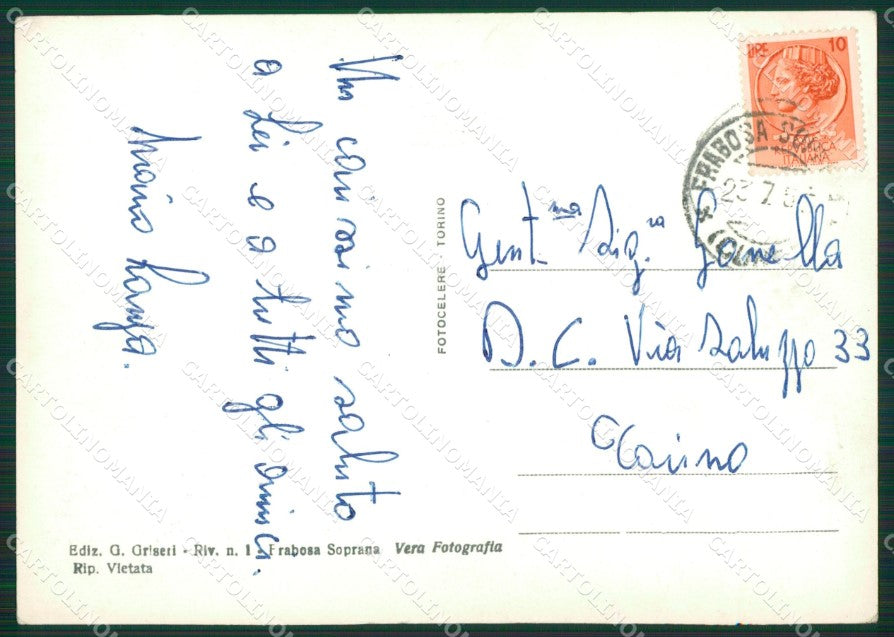 Un carissimo saluto
a Lei e a tutti gli amici.
Maria
FOTOCELERE - TORINO
LIRE 10
REPUBBLICA
ITALIANA
FRABOSA
23.7.5
Gent.ma Sig.ra Gonella
D. C. Via Saluzzo 33
Torino
Ediz. G. Griseri - Riv. n. 1 - Frabosa Soprana Vera Fotografia
Rip. Vietata
CARTOLINOMANIA